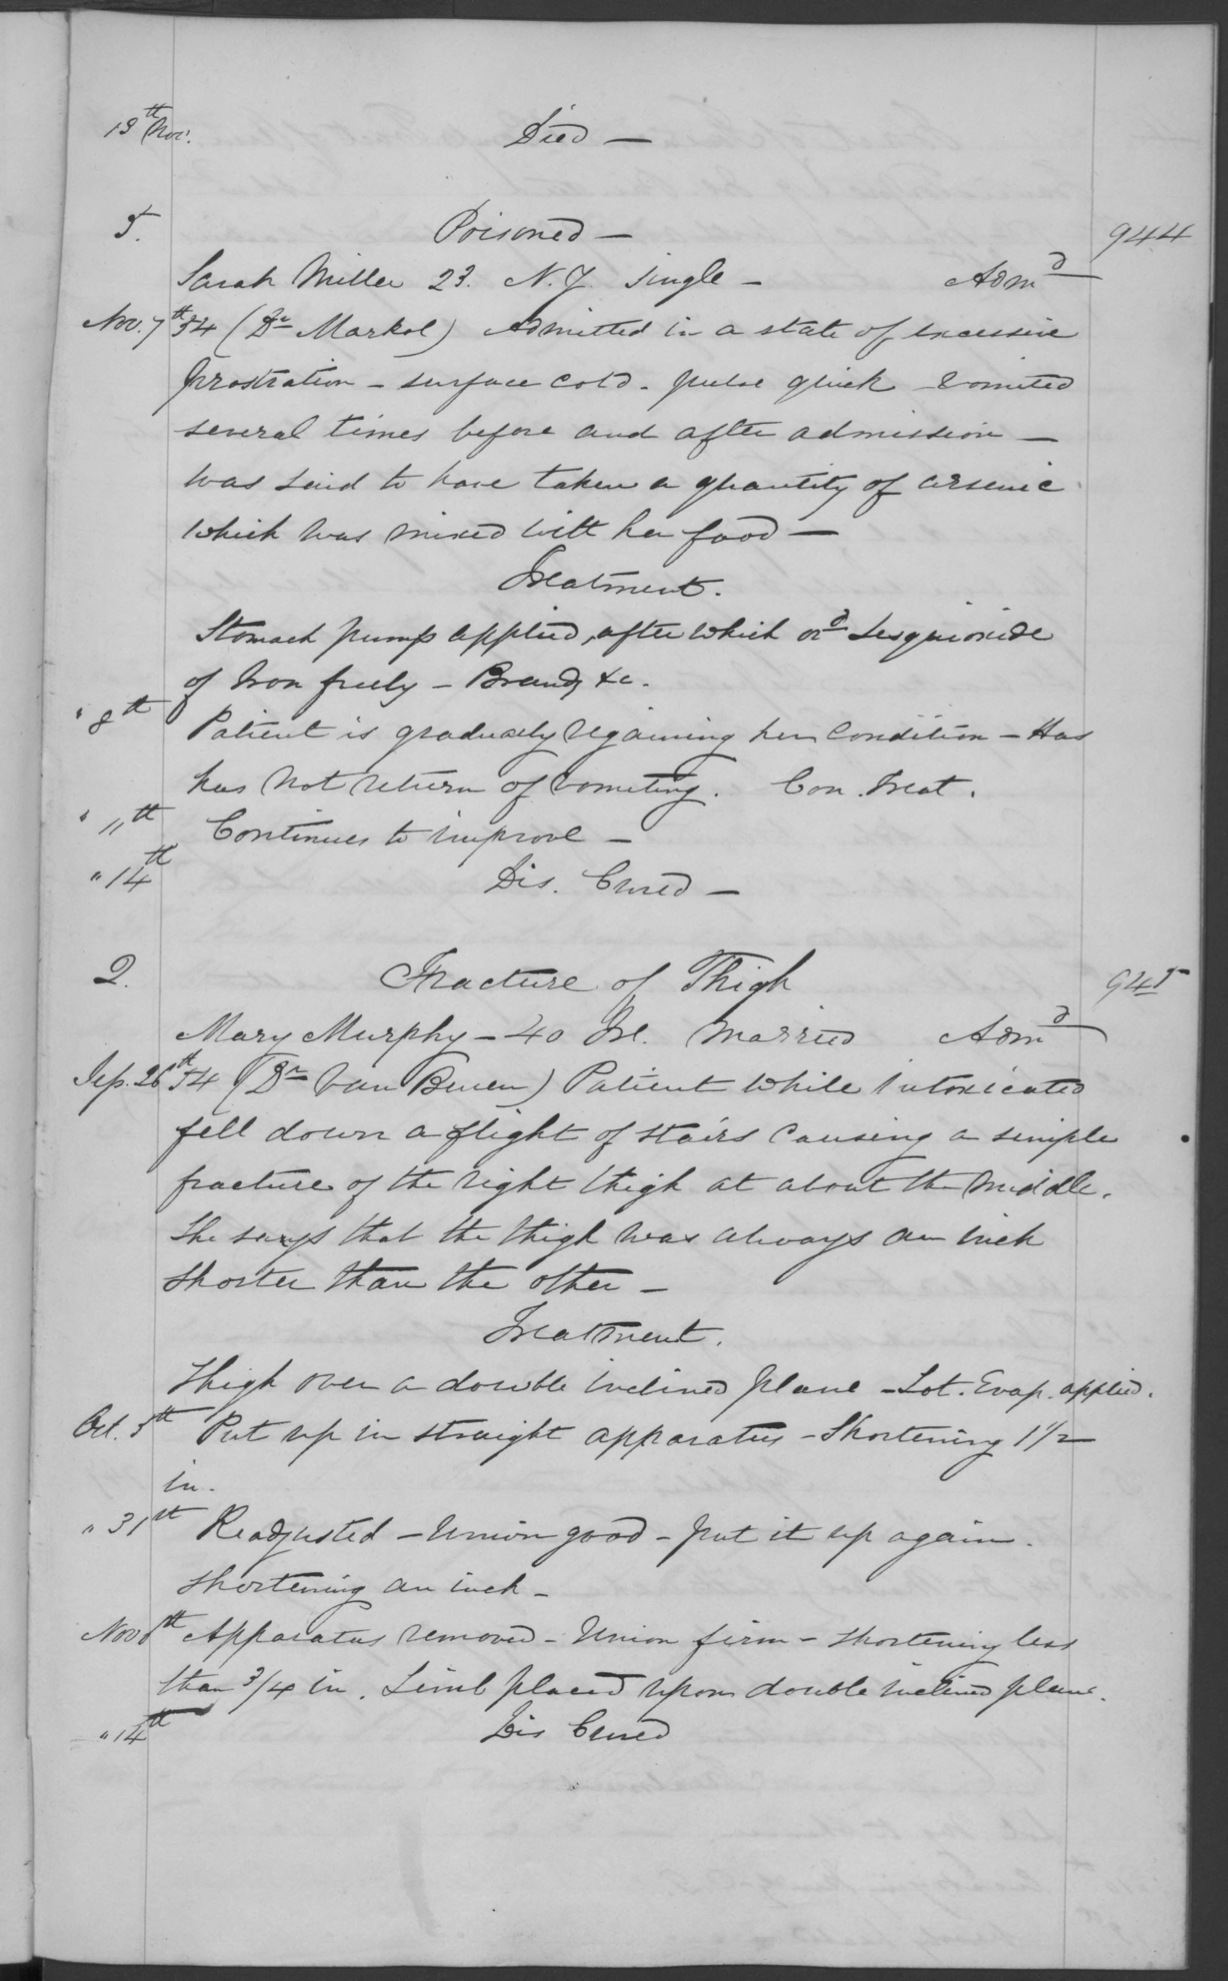 13th Nov. Died —
5. Poisoned — 944
Sarah Miller 23. N.Y. Single — Admd
Nov. 7th 54 (Dr Markoe) Admitted in a state of excessive
prostration – surface cold – pulse quick – vomited
several times before and after admission —
was said to have taken a quantity of arsenic
which was mixed with her food —
Treatment.
Stomach pump applied, after which ord Sesquioxide
of Iron freely – Brandy &c.
" 8th Patient is gradually regaining her condition – Has
has not return of vomiting. Con. Treat.
" 11th Continues to improve —
" 14th Dis. Cured —
2. Fracture of Thigh 945
Mary Murphy – 40 Ire. Married Admd
Sep. 26th 54 (Dr Van Buren) Patient while intoxicated
fell down a flight of stairs causing a simple
fracture of the right thigh at about the middle.
She says that the thigh was always an inch
shorter than the other —
Treatment.
Thigh over a double inclined plane – Lot. Evap. applied.
Oct. 5th Put up in straight apparatus – Shortening 1 1/2
in.
" 31st Readjusted – Union good – put it up again.
shortening an inch –
Nov 6th Apparatus removed – Union firm – shortening less
than 3/4 in. Limb placed upon double inclined plane.
" 14th Dis Cured